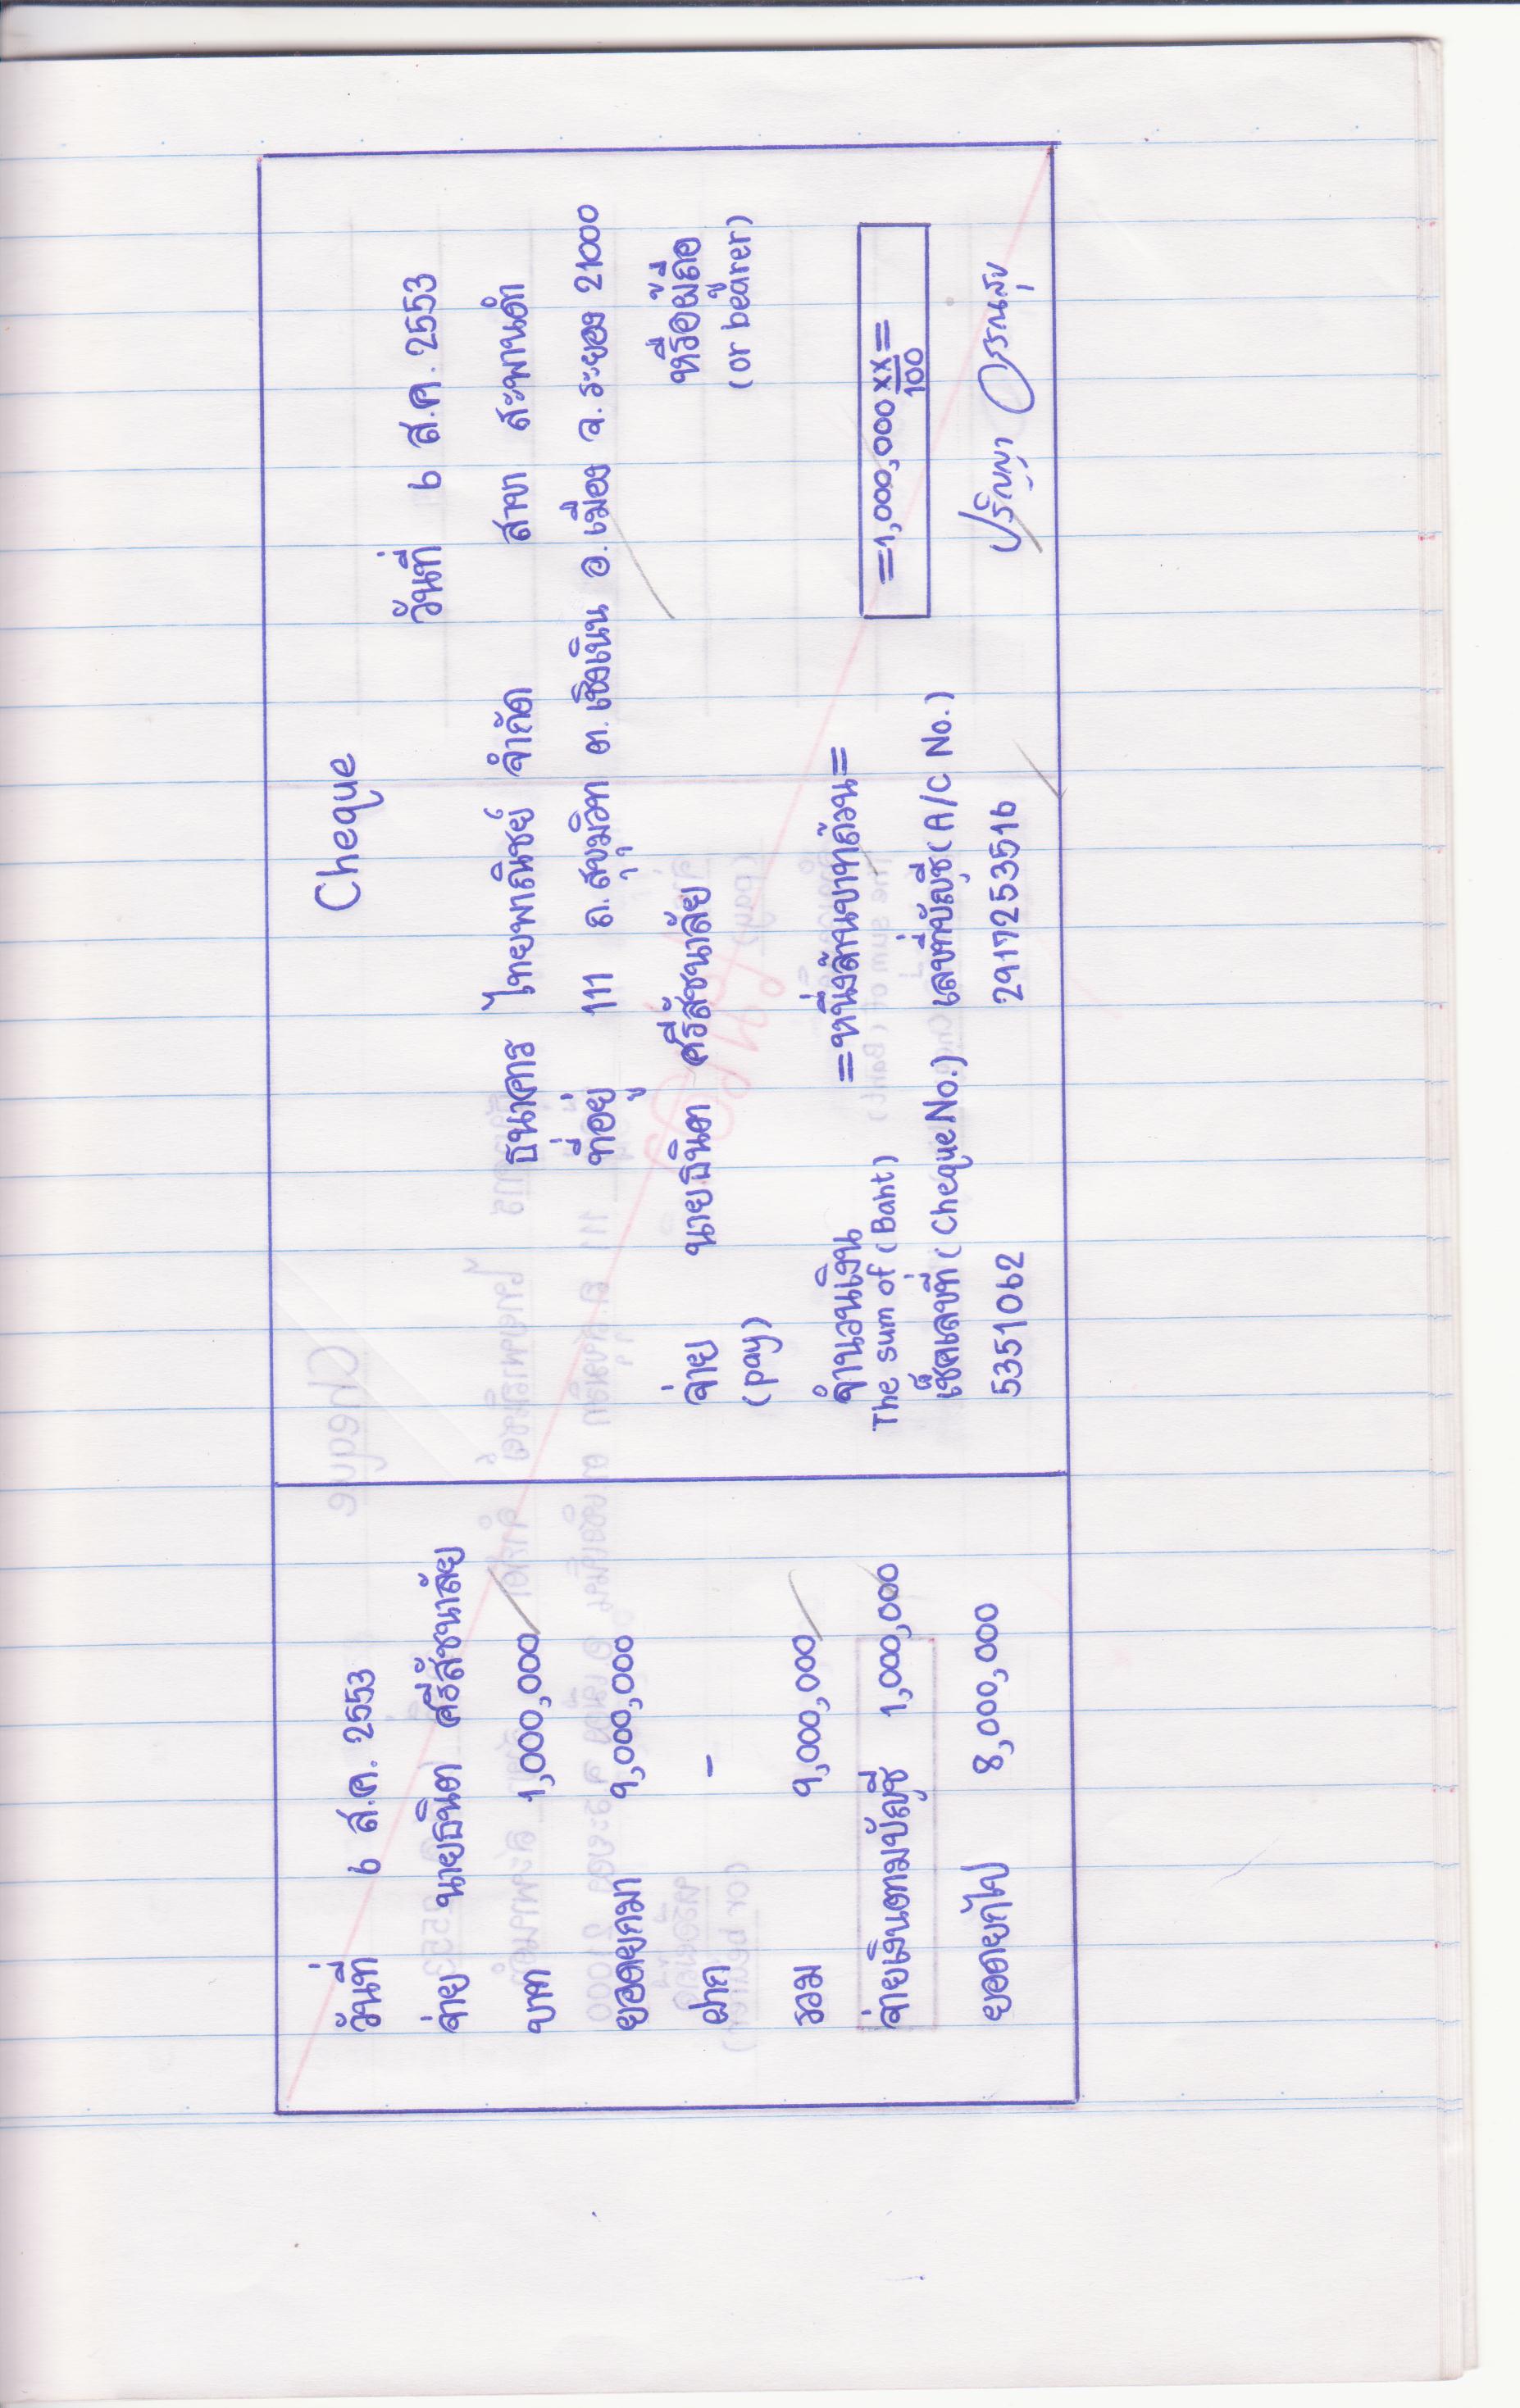 วันที่ 6 ส.ค. 2553
จ่าย นายธนิต ศรีสัชนาลัย
บาท 1,000,000
ยอดยกมา 9,000,000
ฝาก -
รวม 9,000,000
จ่ายเงินตามบัญชี 1,000,000
ยอดยกไป 8,000,000
Cheque
วันที่ 6 ส.ค. 2553
ธนาคาร ไทยพาณิชย์ จำกัด สาขา สะพานดำ
ที่อยู่ 111 ถ.สุขุมวิท ต.เชิงเนิน อ.เมือง จ.ระยอง 21000
จ่าย นายธนิต ศรีสัชนาลัย หรือผู้ถือ
(pay) (or bearer)
จำนวนเงิน =หนึ่งล้านบาทถ้วน=
The sum of (Baht) =1,000,000 xx/100=
เช็คเลขที่ (Cheque No.) เลขที่บัญชี (A/C No.)
5351062 2917253516 ปริญญา วรรณสุข